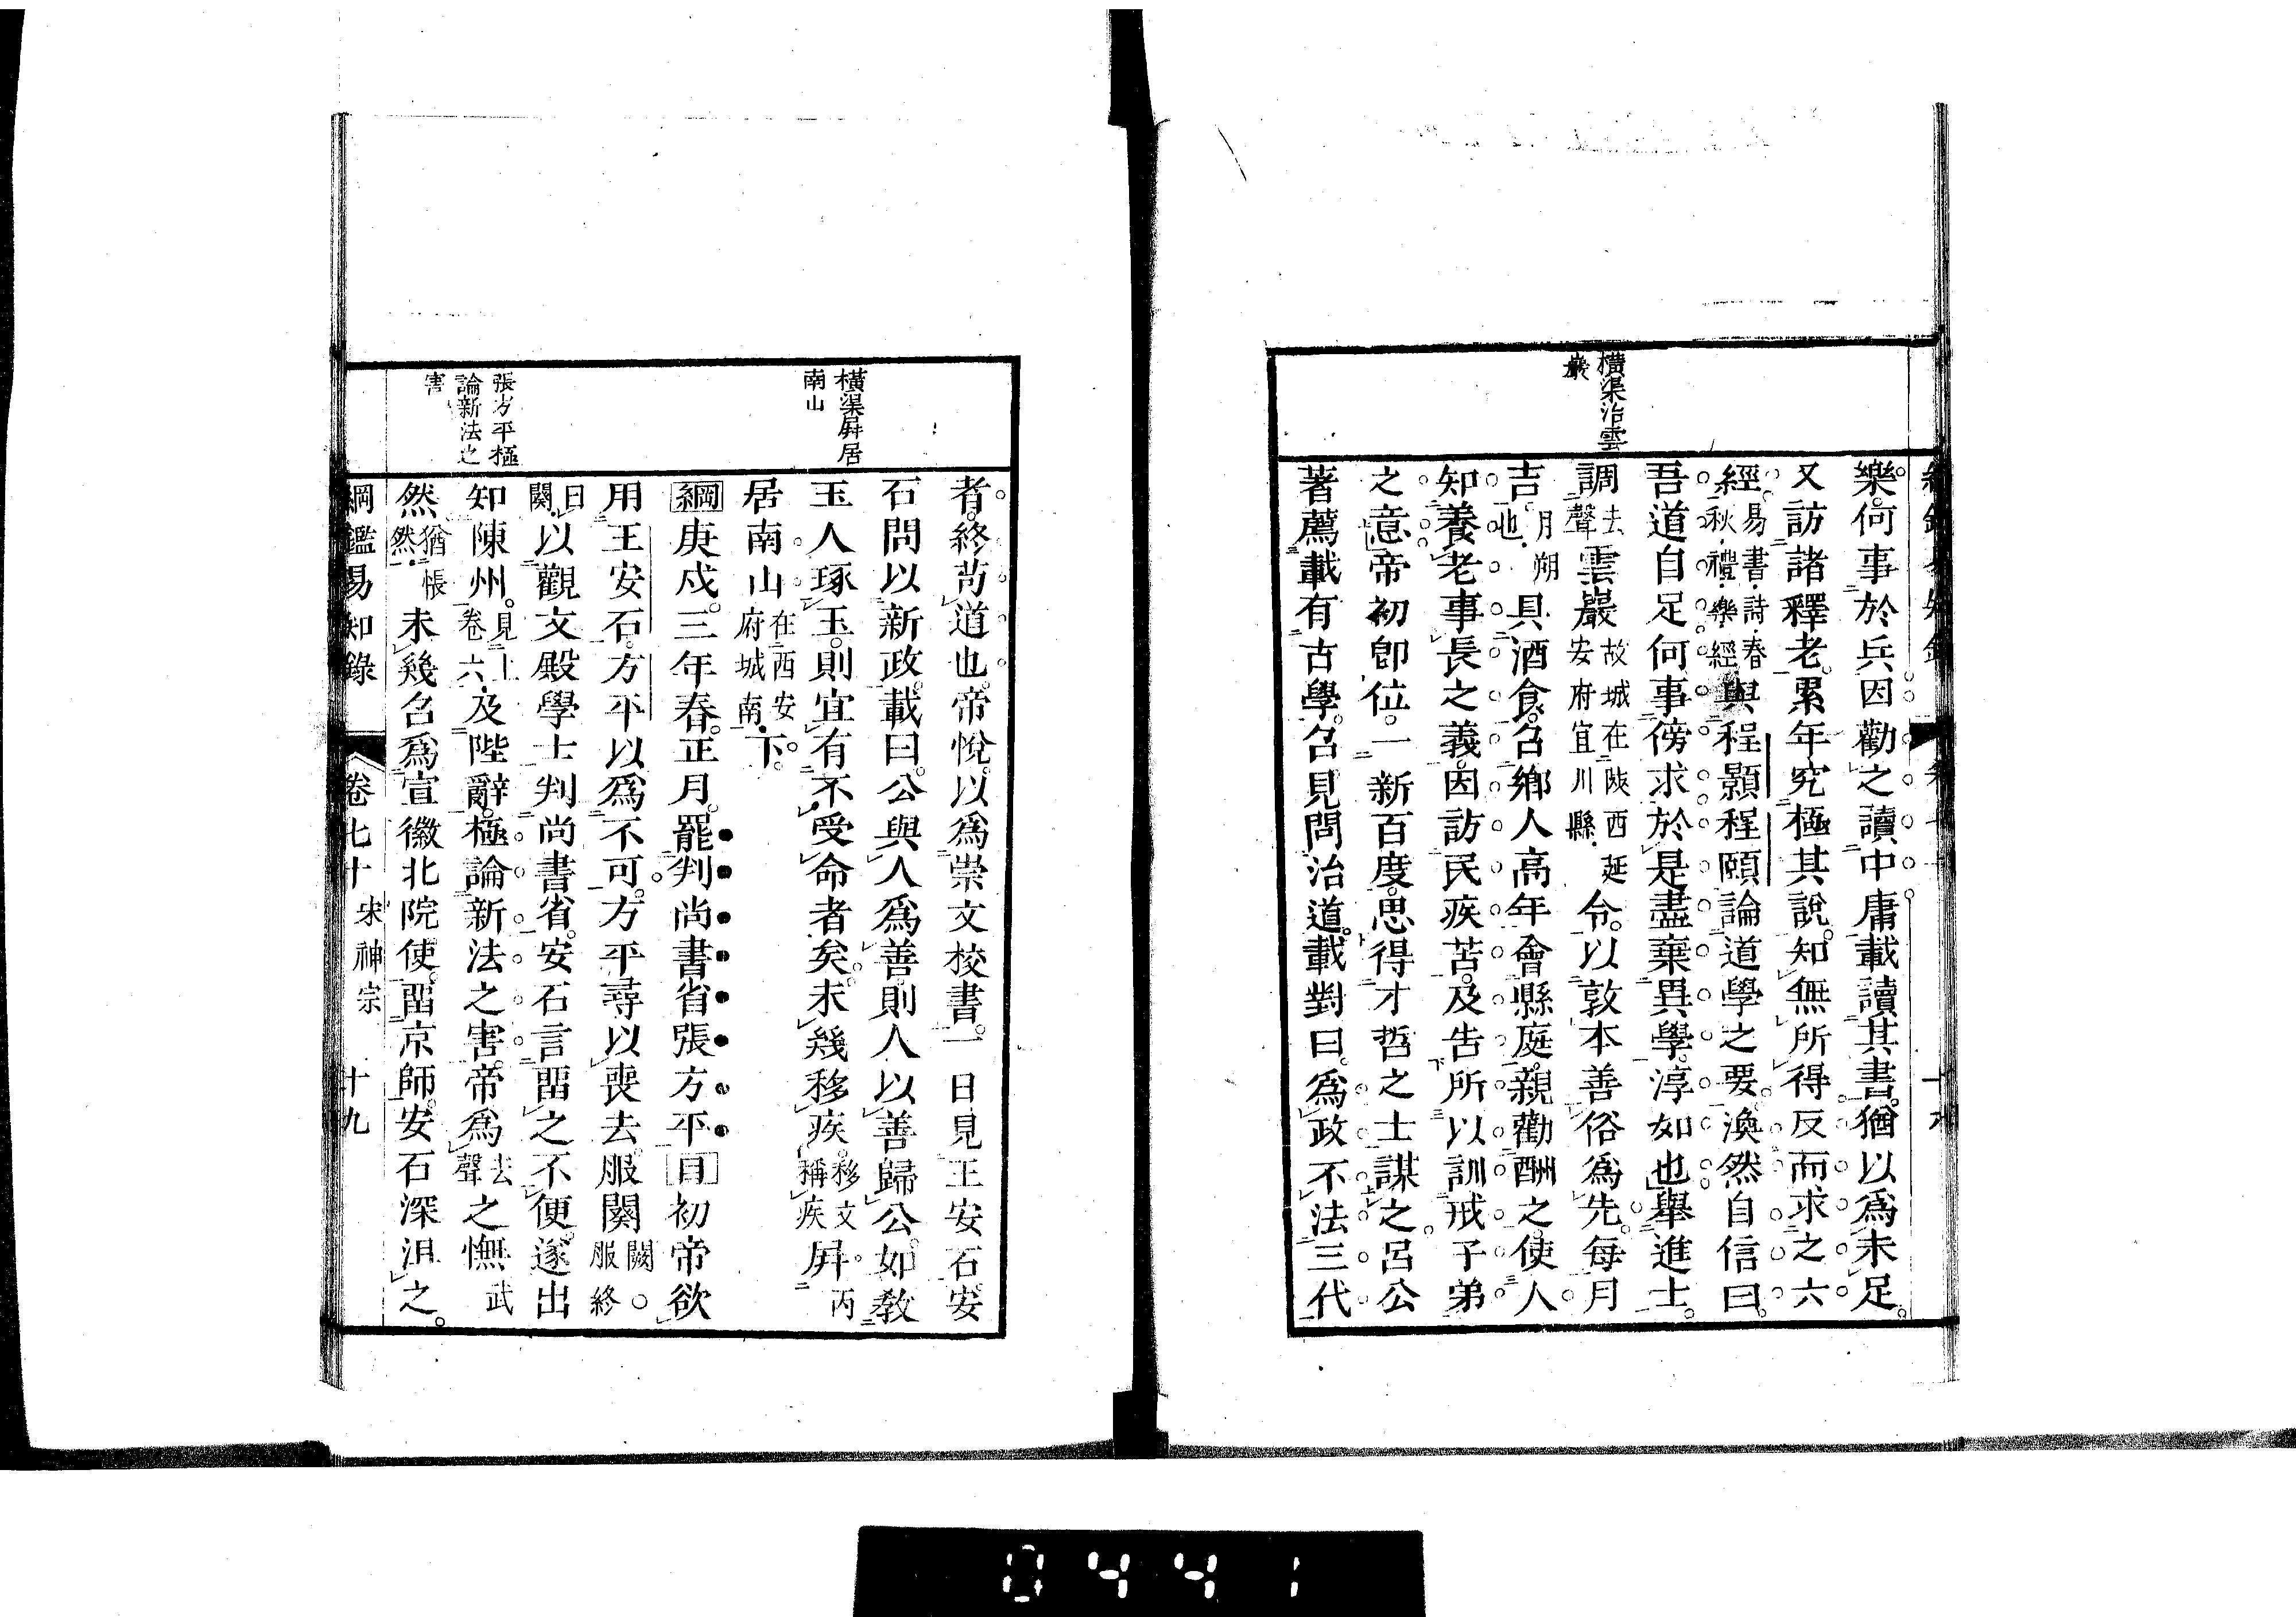 橫渠治雲
巖
樂何事於兵因勸之讀中庸載讀其書猶以爲未足
又訪諸釋老累年究極其說知無所得反而求之六
經易書詩春秋禮樂經與程顥程頤論道學之要渙然自信曰
吾道自足何事傍求於是盡棄異學淳如也舉進士
調去聲雲巖故城在陝西延安府宜川縣令以敦本善俗爲先每月
吉月朔也具酒食召鄉人高年會縣庭親勸酬之使人
知養老事長之義因訪民疾苦及告所以訓戒子弟
之意帝初卽位一新百度思得才哲之士謀之呂公
著薦載有古學召見問治道載對曰爲政不法三代
橫渠屛居
南山
張方平極
論新法之
害
者終茍道也帝悅以爲崇文校書一日見王安石安
石問以新政載曰公與人爲善則人以善歸公如敎
玉人琢玉則宜有不受命者矣未幾移疾移文稱疾屛丙
居南山在西安府城南下
綱庚戌三年春正月罷判尚書省張方平目初帝欲
用王安石方平以爲不可方平尋以喪去服闋服終
曰闋以觀文殿學士判尚書省安石言畱之不便遂出
知陳州見上卷六及陛辭極論新法之害帝爲去聲之憮武
然猶悵然未幾召爲宣徽北院使畱京師安石深沮之
綱鑑易知錄 卷七十 宋神宗 十九